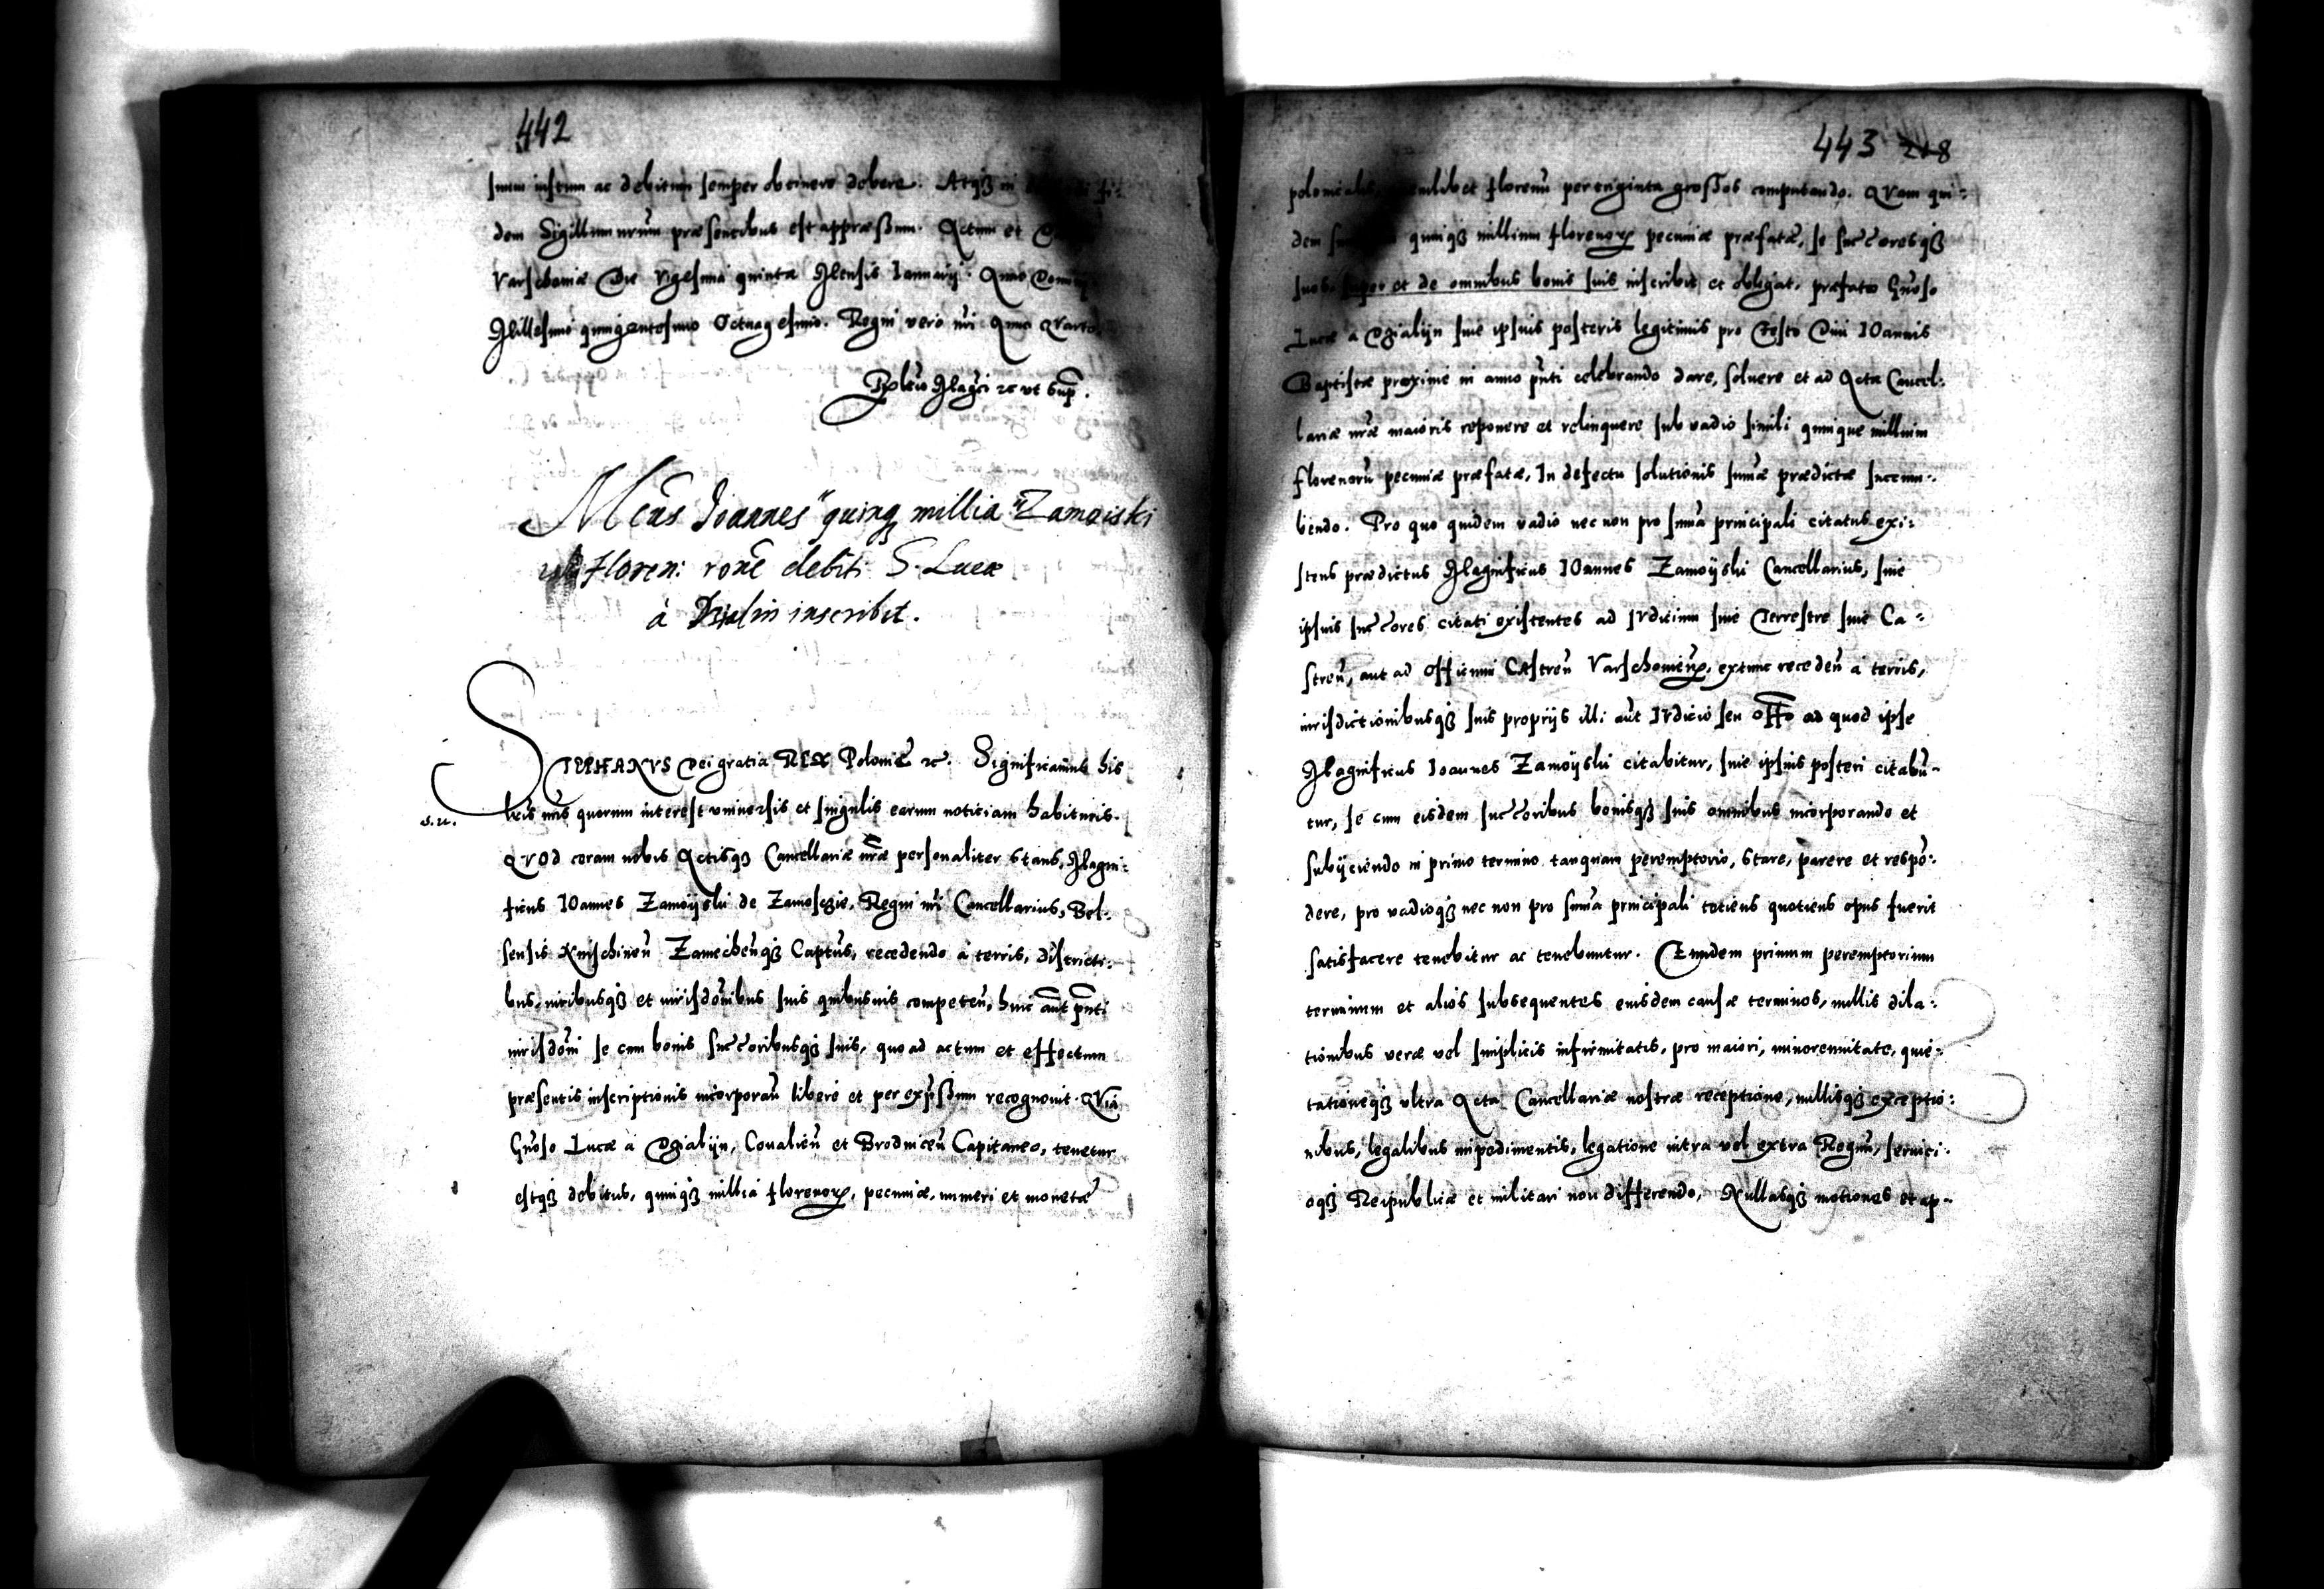 442
suum iustum ac debitum semper obtinere debere. Atqȝ in fi-
dem Sigillum nrum præsentibus est appræssum. Actum et
Varschouiæ Die vigesima quinta Mensis Ianuarij. Anno Domi
Millesimo quingentesimo Octuagesimo. Regni vero nri Anno Quarto.
Rlatio Magci zc vt sup.
Mcus Joannes "quinq millia "Zamoiski
Floren: rone debiti S. Lucæ
à Dzialin inscribit.
STEPHANVS Dei gratia REX Poloniæ zc. Significamus his
s.n.
lris nris quorum interest vniuersis et singulis earum noticiam habituris.
QVOd coram nobis Actisqȝ Cancellariæ nræ personaliter stans, Magni-
ficus IOannes Zamoyski de Zamosczie, Regni nri Cancellarius, Bel-
sensis Knischinen Zamechenqȝ Captus, recedendo a terris, districti-
bus, iuribusqȝ et iurisdonibus suis quibusuis competen, huic aut pnti
iurisdoni se cum bonis succoribusqȝ suis, quo ad actum et effectum
præsentis inscriptionis incorporan libere et per expssum recognouit. QVia
Gnoso Lucæ a Dzialijn, Coualien et Brodnicen Capitaneo, tenetur
estqȝ debitus, quinqȝ millia florenoꝝ, pecuniæ, numeri et monetæ
443 218
polonicalis, quemlibet florenu per triginta grossos computando. QVam qui-
dem quinqȝ millium florenoꝝ pecuniæ præfatæ, se succoresqȝ
suos, super et de omnibus bonis suis inscribit et obligat, præfato Gnoso
Lucæ a Dzialijn siue ipsius posteris legitimis pro Festo Diui IOannis
Baptistæ proxime in anno pnti celebrando dare, soluere et ad Acta Cancel-
lariæ nræ maioris reponere et relinquere sub vadio simili quinque millium
florenoru pecuniæ præfatæ, In defectu solutionis sumæ prædictæ succum-
bendo. Pro quo quidem vadio nec non pro suma principali citatus exi-
stens prædictus Magnificus IOannes Zamoyski Cancellarius, siue
ipsius succores citati existentes ad IVdicium siue Terrestre siue Ca-
stren, aut ad Officium CAstren Varschouienꝝ, extunc receden a terris,
iurisdictionibusqȝ suis proprijs illi aut IVdicio seu offo ad quod ipse
Magnificus Ioannes Zamoyski citabitur, siue ipsius posteri citabu-
tur, se cum eisdem succoribus bonisqȝ suis omnibus incorporando et
subijciendo in primo termino tanquam peremptorio, stare, parere et respo-
dere, pro vadioqȝ nec non pro suma principali totiens quotiens opus fuerit
satisfacere tenebitur ac tenebuntur. Eundem primum peremptorium
terminum et alios subsequentes eiusdem causæ terminos, nullis dila-
tionibus veræ vel simplicis infirmitatis, pro maiori, minorennitate, quie-
tationeqȝ vltra Acta Cancellariæ nostræ receptione, nullisqȝ exceptio-
nibus, legalibus impedimentis, legatione intra vel extra Regnu, serui­ci-
oqȝ Reipublicæ et militari non differendo, Nullasqȝ motiones et ap-